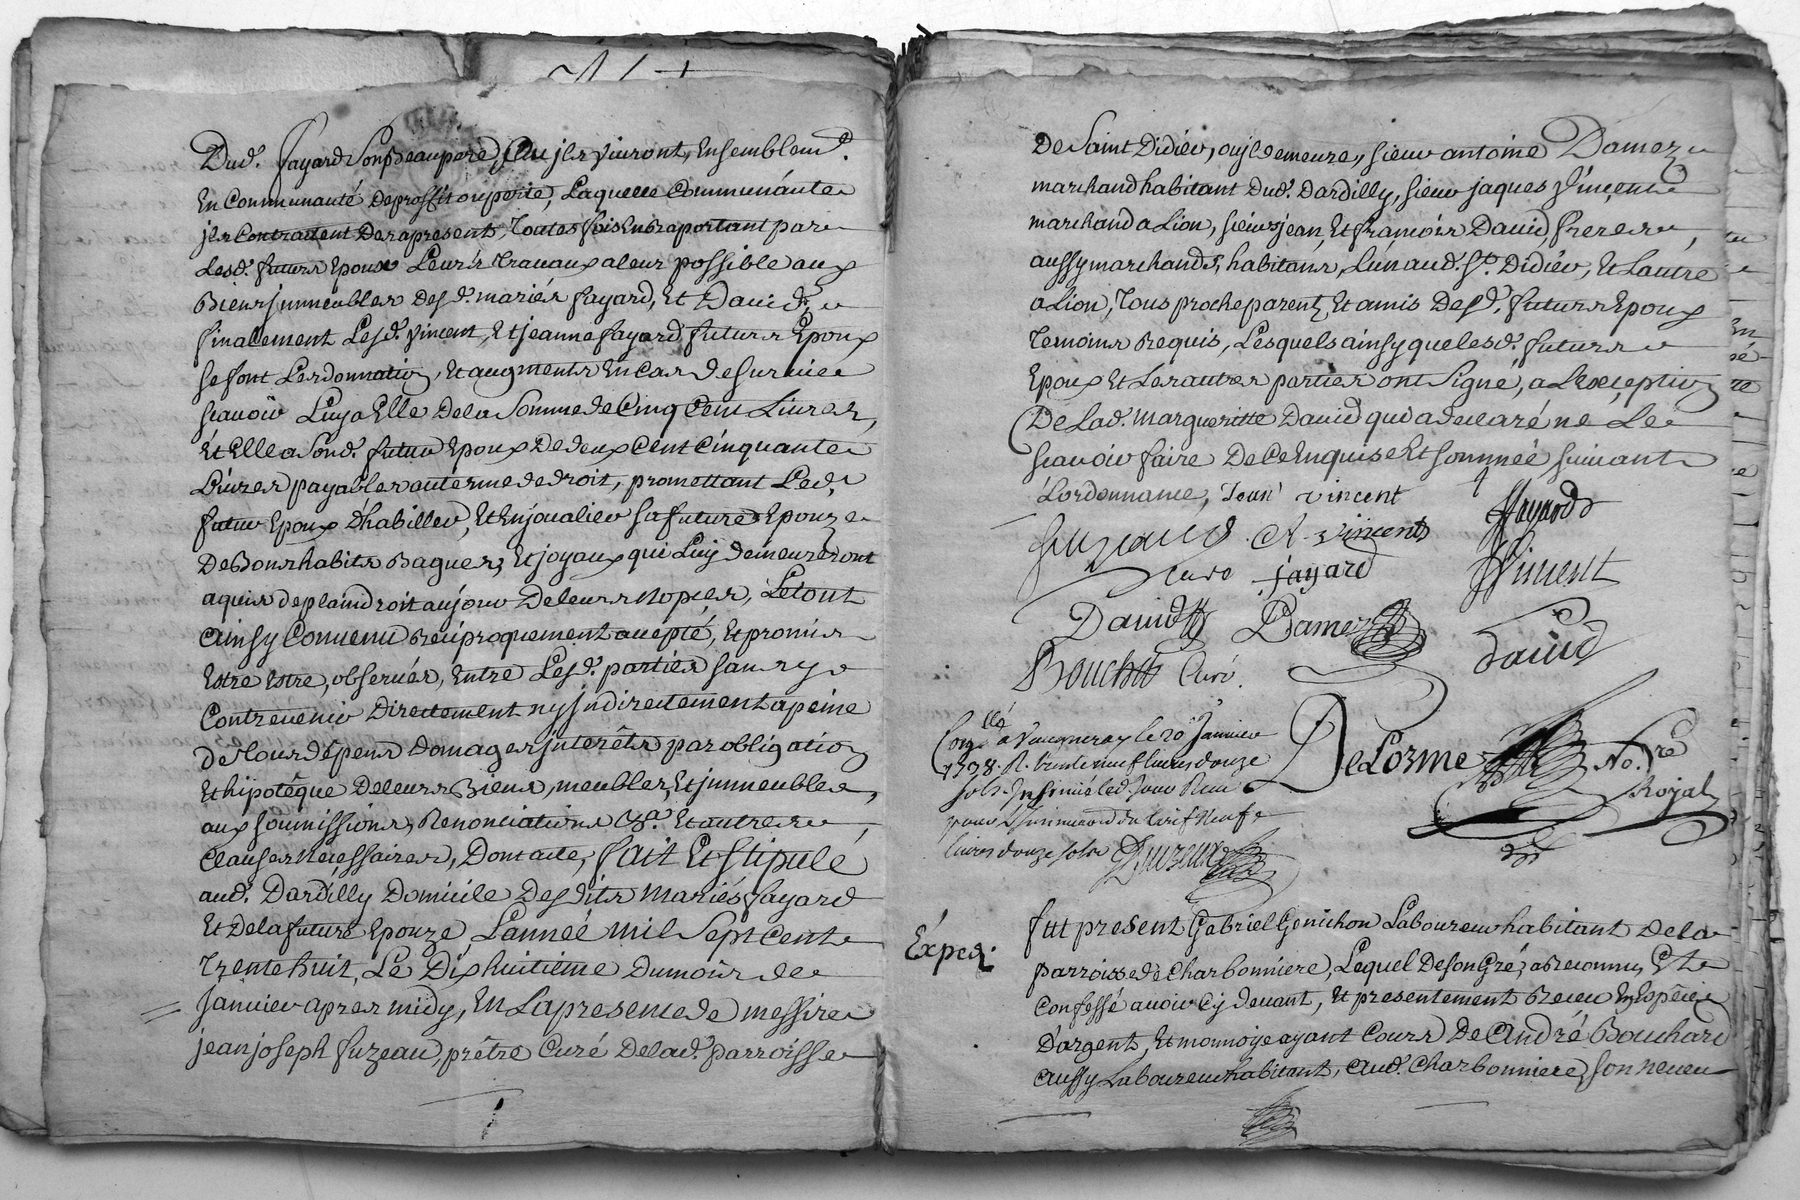 Dud. fayard Son Beaupere, Qu'ils vivront, Ensemblem.t
En Communauté de proffit ou perte, Laquelle Communauté
ils Contractent Des apresent, Toutes fois En raportant par
Lesd. futurs Epoux Leurs Travaux a leur possible aux
Biens immeubles Desd. mariés fayard, Et David,
finalement Lesd. Vincent, Et jeanne fayard futurs Epoux
se font Les donnation, Et augments En Cas de survie
scavoir Luy a Elle De la Somme de Cinq Cent Livres,
Et Elle a Sond. futur Epoux De deux Cent Cinquante
Livres payables au terme de droit, promettant Led.
futur Epoux d'habiller, Et Enjoualier sa future Epouze
De Bons habits Bagues, Et joyaux qui Luy demeureront
aquis de plain droit au jour De leurs Nopces, Le tout
ainsy Convenu Reciproquement accepté, Et promis
Estre observés, Entre Lesd. parties sans y
Contrevenir Directement ny indirectement a peine
de Tous dépens domages interêts par obligation
Et hipotêque De leurs Biens, meubles, Et immeubles,
aux soumissions, Renonciations &a. Et autres
Clauses Necessaires, Dont acte, fait Et stipulé
aud. Dardilly Domicile Desdits Mariés fayard
Et De la future Epouze L'année mil Sept Cent
Trente huit, Le Dix huitième Du mois de
Janvier apres midy, En La presence de messire
jean joseph fuzeau, prêtre Curé De lad. parroisse
De Saint Didier, ou il demeure, sieur antoine Damez
marchand habitant Dud. Dardilly, sieur jaques Vincent
marchand a Lion, sieurs jean, Et francois David freres,
aussy marchands, habitans, L'un aud. St. Didier, Et L'autre
a Lion, Tous proche parent, Et amis Desd. futurs Epoux
Temoins Requis, Lesquels ainsy que lesd. futurs
Epoux Et Les autres parties ont Signé, a L'exception
De Lad. Margueritte David qui a declaré ne Le
scavoir faire De Ce Enquise Et sommée suivant
L'ordonnance, Jean vincent
fayard
fuzeaud Curé
vincent
fayard
Vincent
David
Damez
David
Bouchet Curé.
Conllé a Vaugneray le 20 Janvier
1738. R. trente neuf livres douze
sols. Insinué led. Jour Reçu
pour L'insinuaon du tarif Neuf
livres douze sols
DeLorme No.re
Royal
Exped.
fut present Gabriel Genichon Laboureur habitant De la
parroisse de Charbonniere, Lequel De son Gré, a Reconnu, Et
Confessé avoir Cy devant, Et presentement Receu En Espêces
D'argent, Et monnoye ayant Cours De André Bouchard
aussy Laboureur habitant, aud. Charbonniere, son neveu